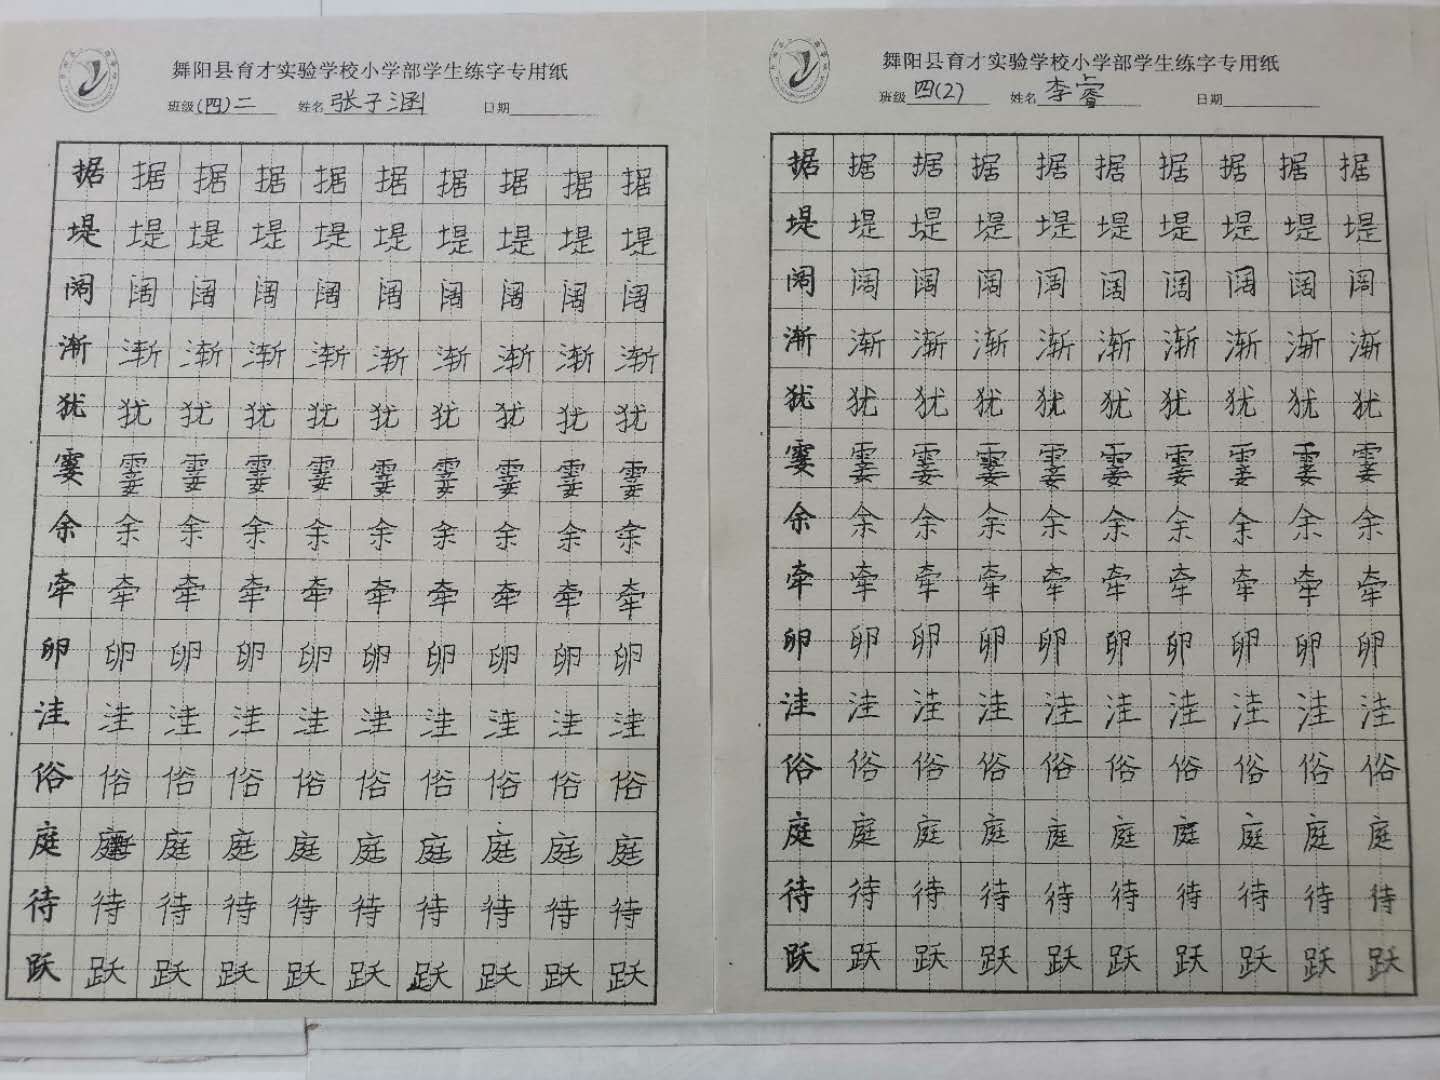 舞阳县育才实验学校小学部学生练字专用纸
班级(四)二 姓名张子涵 日期
据据据据据据据据据据
堤堤堤堤堤堤堤堤堤堤
阔阔阔阔阔阔阔阔阔阔
渐渐渐渐渐渐渐渐渐渐
犹犹犹犹犹犹犹犹犹犹
霎霎霎霎霎霎霎霎霎霎
余余余余余余余余余余
牵牵牵牵牵牵牵牵牵牵
卵卵卵卵卵卵卵卵卵卵
洼洼洼洼洼洼洼洼洼洼
俗俗俗俗俗俗俗俗俗俗
庭庭庭庭庭庭庭庭庭庭
待待待待待待待待待待
跃跃跃跃跃跃跃跃跃跃
舞阳县育才实验学校小学部学生练字专用纸
班级四(2) 姓名李睿 日期
据据据据据据据据据据
堤堤堤堤堤堤堤堤堤堤
阔阔阔阔阔阔阔阔阔阔
渐渐渐渐渐渐渐渐渐渐
犹犹犹犹犹犹犹犹犹犹
霎霎霎霎霎霎霎霎霎霎
余余余余余余余余余余
牵牵牵牵牵牵牵牵牵牵
卵卵卵卵卵卵卵卵卵卵
洼洼洼洼洼洼洼洼洼洼
俗俗俗俗俗俗俗俗俗俗
庭庭庭庭庭庭庭庭庭庭
待待待待待待待待待待
跃跃跃跃跃跃跃跃跃跃